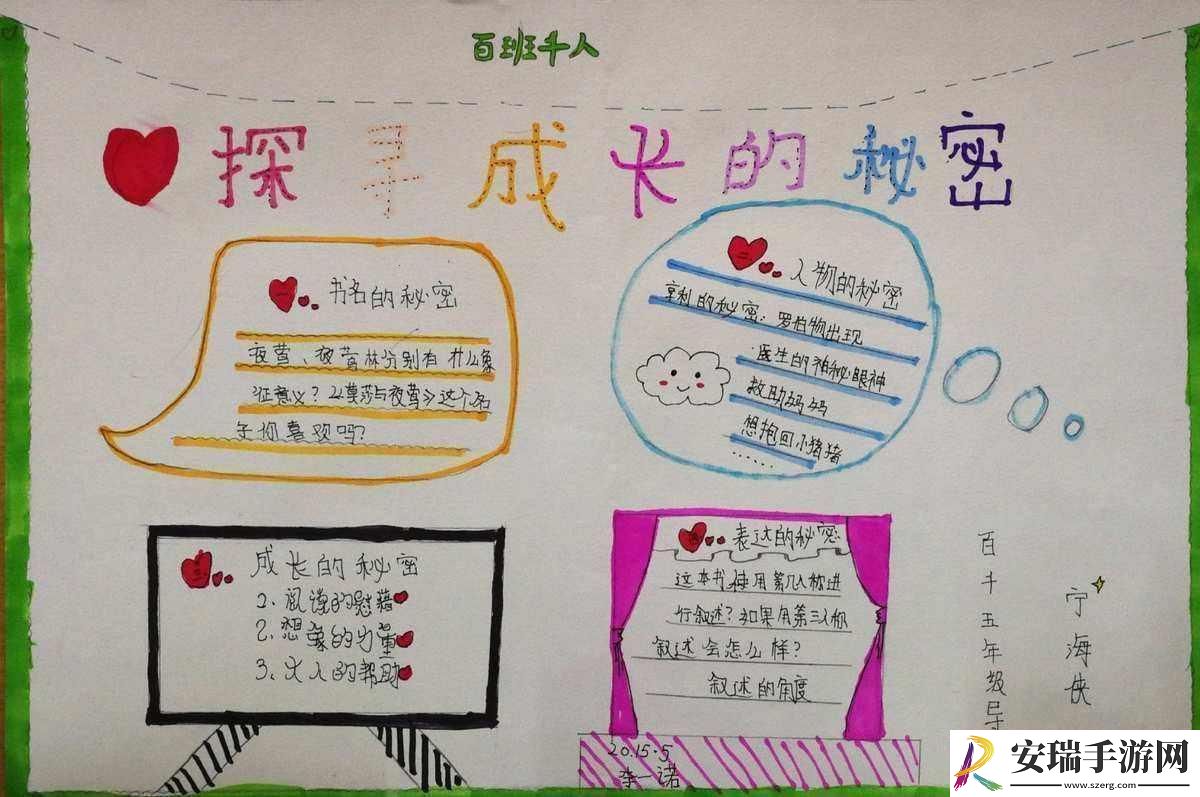 百班千人
探寻成长的秘密
一 书名的秘密
夜莺、夜莺林分别有什么象
征意义?《莫莎与夜莺》这个名
字你喜欢吗?
二 人物的秘密
亨利的秘密:罗伯物出现
医生的神秘眼神
救助妈妈
想抱回小猪猪
……
三 成长的秘密
1、阅读的慰藉
2、想象的力量
3、大人的帮助
四 表达的秘密
这本书使用第几人称进
行叙述?如果用第三人称
叙述会怎么样?
叙述的角度
2015·5
李一诺
百千五年级导
宁海侠
安瑞手游网
www.szerg.com